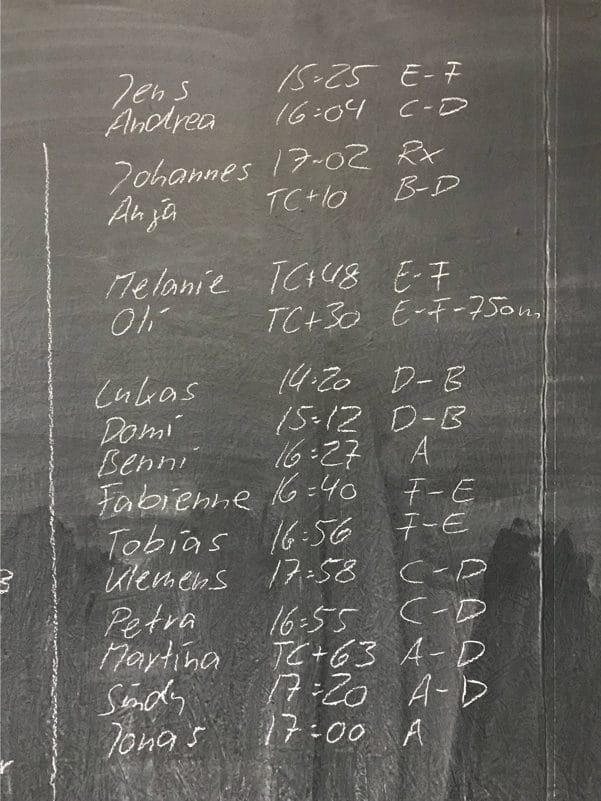 Jens 15:25 E-F
Andrea 16:04 C-D
Johannes 17-02 Rx
Anja TC+10 B-D
Melanie TC+48 E-F
Oli TC+30 E-F-750m
Lukas 14:20 D-B
Domi 15:12 D-B
Benni 16:27 A
Fabienne 16:40 F-E
Tobias 16:56 F-E
Klemens 17:58 C-D
Petra 16:55 C-D
Martina TC+63 A-D
Sindy 17:20 A-D
Jonas 17:00 A
3
r